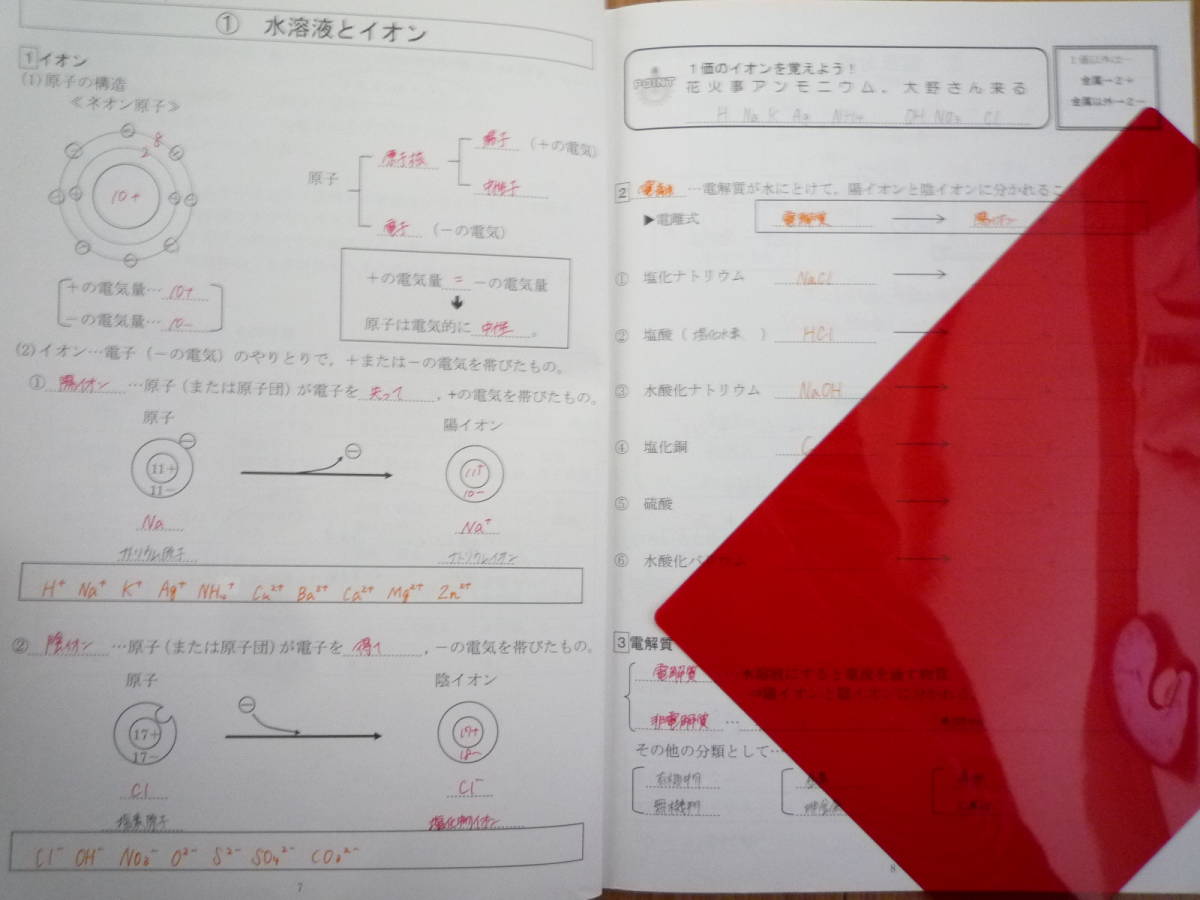 ① 水溶液とイオン
1 イオン
(1)原子の構造
≪ネオン原子≫
8
2
10+
原子
原子核
陽子 (+の電気)
中性子
電子 (−の電気)
+の電気量… 10+
−の電気量… 10−
+の電気量 = −の電気量
原子は電気的に 中性 。
(2)イオン…電子(−の電気)のやりとりで,+または−の電気を帯びたもの。
① 陽イオン …原子(または原子団)が電子を 失って ,+の電気を帯びたもの。
原子 陽イオン
11+ 11+
11− 10−
Na Na⁺
ナトリウム原子 ナトリウムイオン
H⁺ Na⁺ K⁺ Ag⁺ NH₄⁺ Cu²⁺ Ba²⁺ Ca²⁺ Mg²⁺ Zn²⁺
② 陰イオン …原子(または原子団)が電子を 得て ,−の電気を帯びたもの。
原子 陰イオン
17+ 17+
17− 18−
Cl Cl⁻
塩素原子 塩化物イオン
Cl⁻ OH⁻ NO₃⁻ O²⁻ S²⁻ SO₄²⁻ CO₃²⁻
7
POINT
1価のイオンを覚えよう!
花火事アンモニウム,大野さん来る
H Na K Ag NH₄ OH NO₃ Cl
1価以外は…
金属→2+
金属以外→2−
2 電離 …電解質が水にとけて,陽イオンと陰イオンに分かれるこ
▶電離式 電解質 → 陽イオン
① 塩化ナトリウム NaCl →
② 塩酸(塩化水素) HCl →
③ 水酸化ナトリウム NaOH →
④ 塩化銅 C →
⑤ 硫酸 →
⑥ 水酸化バリウム →
3 電解質
電解質 水溶液にすると電流を通す物質
⇒陽イオンと陰イオンに分かれる
非電解質 …
その他の分類として…
有機物
無機物
8